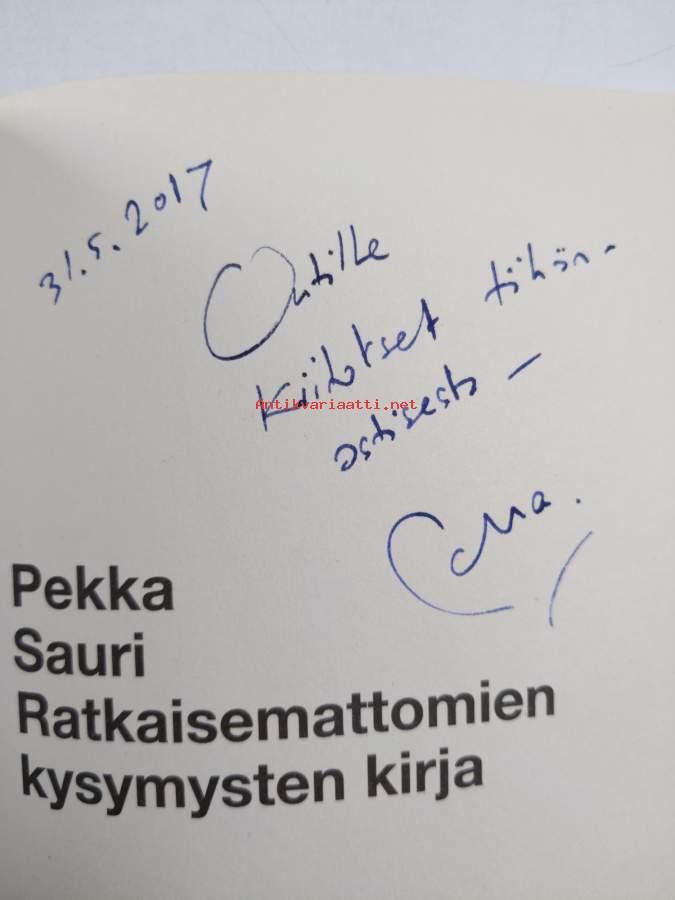 31.5.2017
Outille
Kiitokset tähän-
astisesta -
Antikvariaatti.net
Pekka
Sauri
Ratkaisemattomien
kysymysten kirja